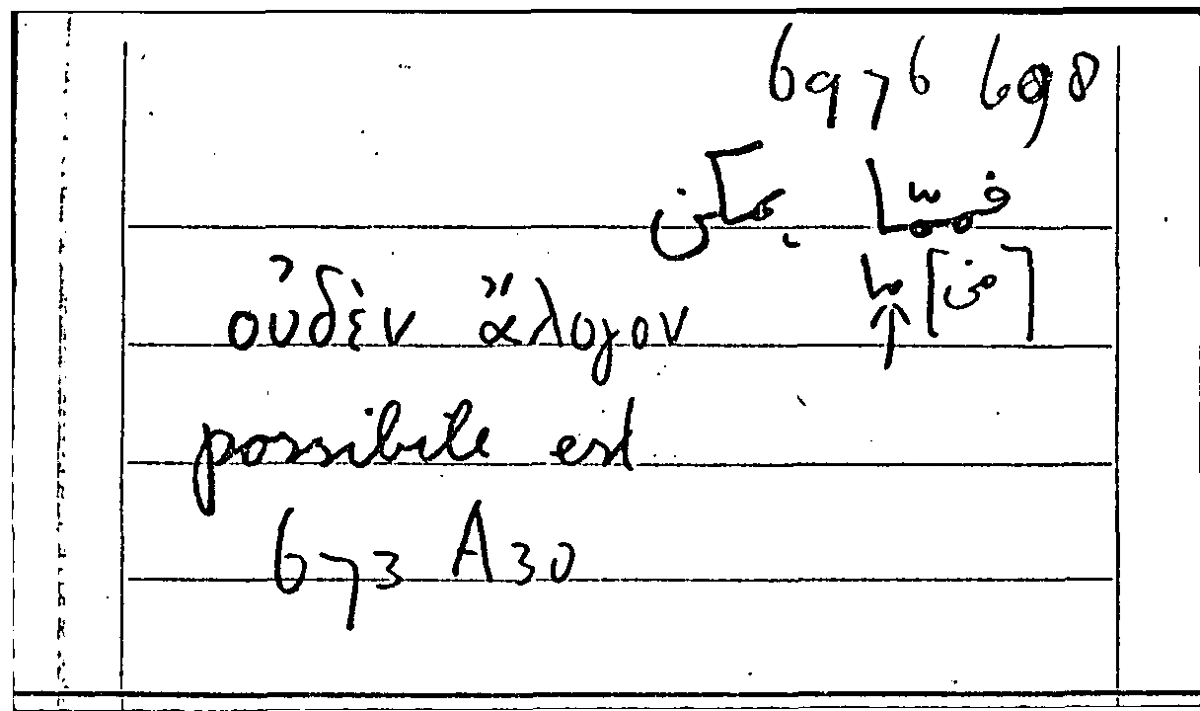 6976 698
فمما يمكن
[من] ما
οὐδὲν ἄλογον
possibile est
673 A30